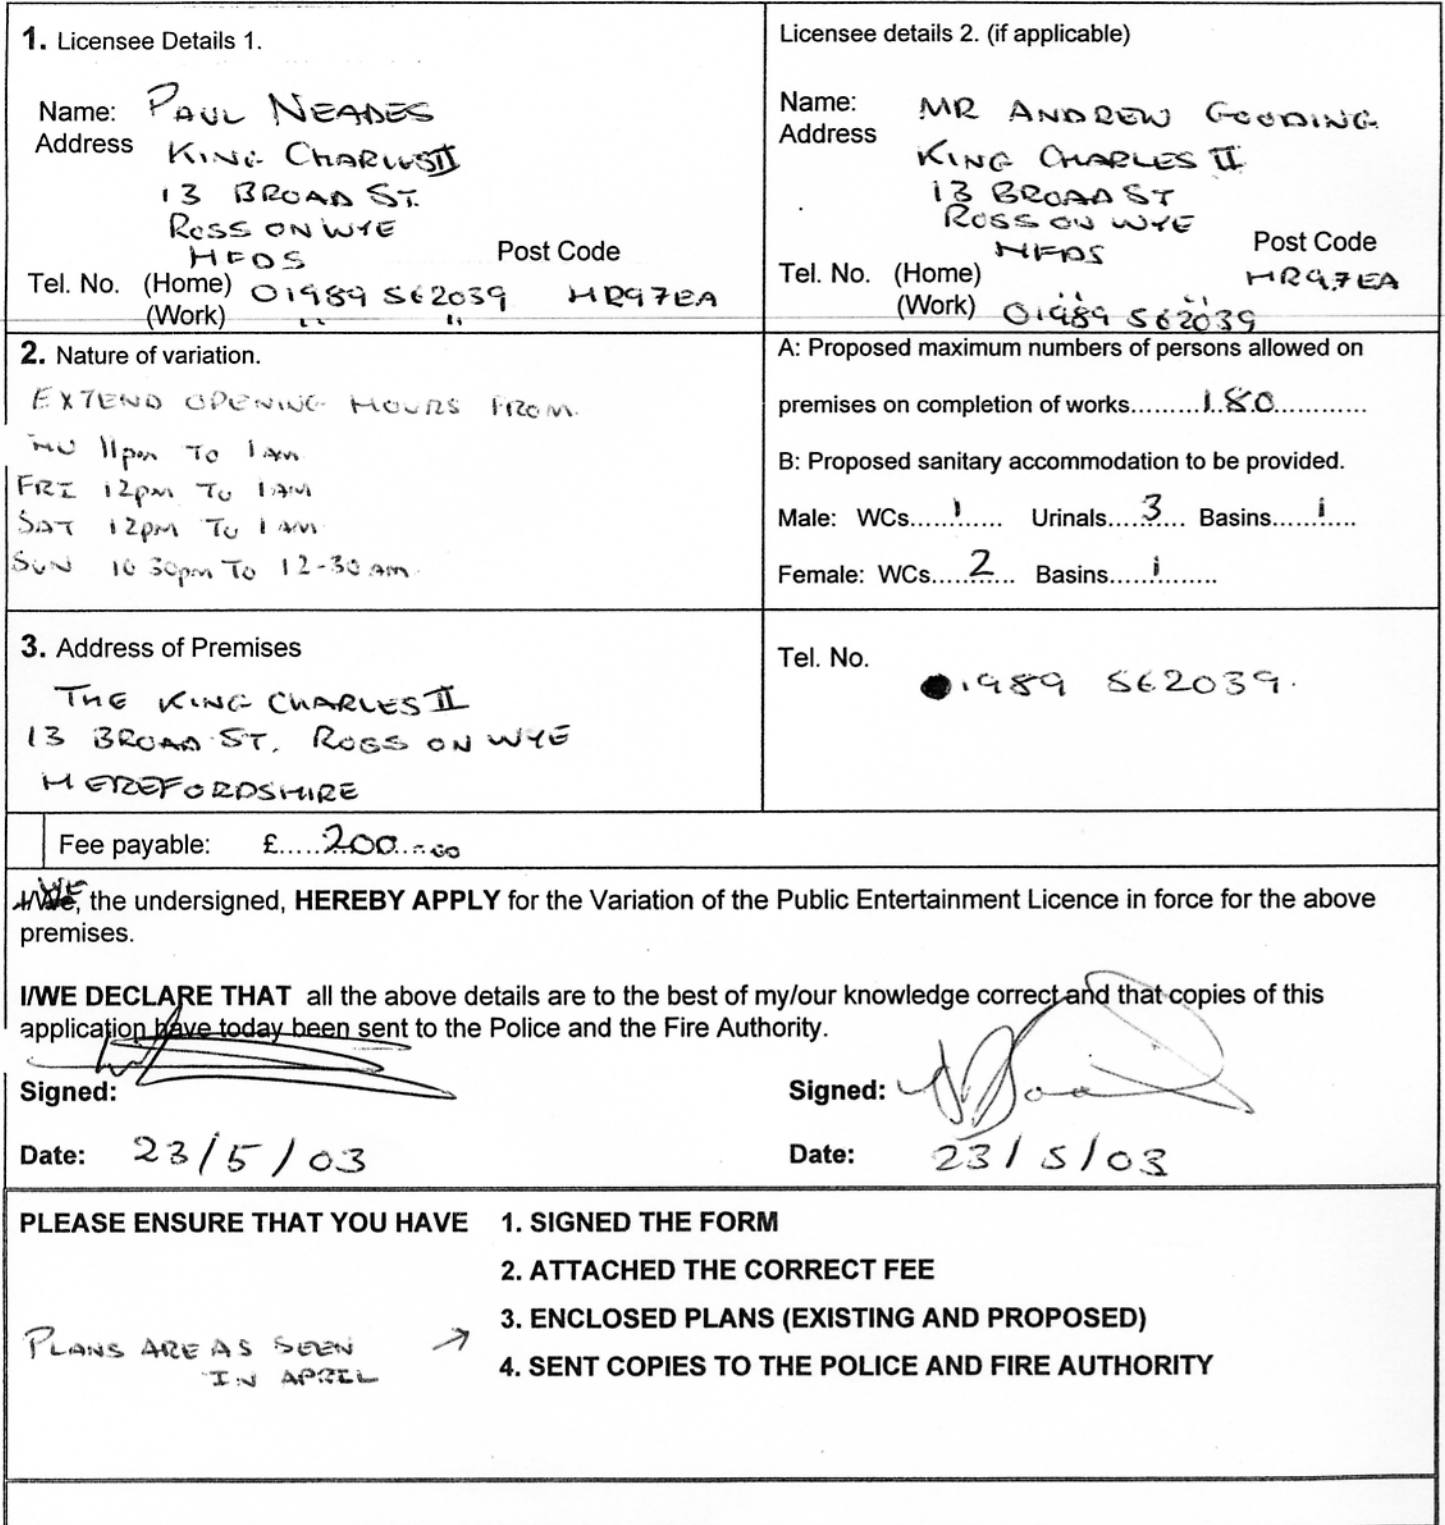 1. Licensee Details 1.
Name: PAUL NEADES
Address KING CHARLES II
13 BROAD ST.
ROSS ON WYE
HFDS Post Code
Tel. No. (Home) 01989 562039 HR97EA
(Work) " "
Licensee details 2. (if applicable)
Name: MR ANDREW GOODING
Address KING CHARLES II
13 BROAD ST
ROSS ON WYE
HFDS Post Code
Tel. No. (Home) " " HR97EA
(Work) 01989 562039
2. Nature of variation.
EXTEND OPENING HOURS FROM
THU 11pm TO 1AM
FRI 12pm TO 1AM
SAT 12pm TO 1AM
SUN 10 30pm TO 12-30am
A: Proposed maximum numbers of persons allowed on
premises on completion of works.........180............
B: Proposed sanitary accommodation to be provided.
Male: WCs.....1...... Urinals.....3.... Basins......1....
Female: WCs.....2..... Basins......1........
3. Address of Premises
THE KING CHARLES II
13 BROAD ST. ROSS ON WYE
HEREFORDSHIRE
Tel. No.
01989 562039.
Fee payable: £.....200...-00
I/We, WE the undersigned, HEREBY APPLY for the Variation of the Public Entertainment Licence in force for the above
premises.
I/WE DECLARE THAT all the above details are to the best of my/our knowledge correct and that copies of this
application have today been sent to the Police and the Fire Authority.
Signed:
Date: 23/5/03
Signed:
Date: 23/5/03
PLEASE ENSURE THAT YOU HAVE 1. SIGNED THE FORM
2. ATTACHED THE CORRECT FEE
3. ENCLOSED PLANS (EXISTING AND PROPOSED)
PLANS ARE AS SEEN →
IN APRIL
4. SENT COPIES TO THE POLICE AND FIRE AUTHORITY